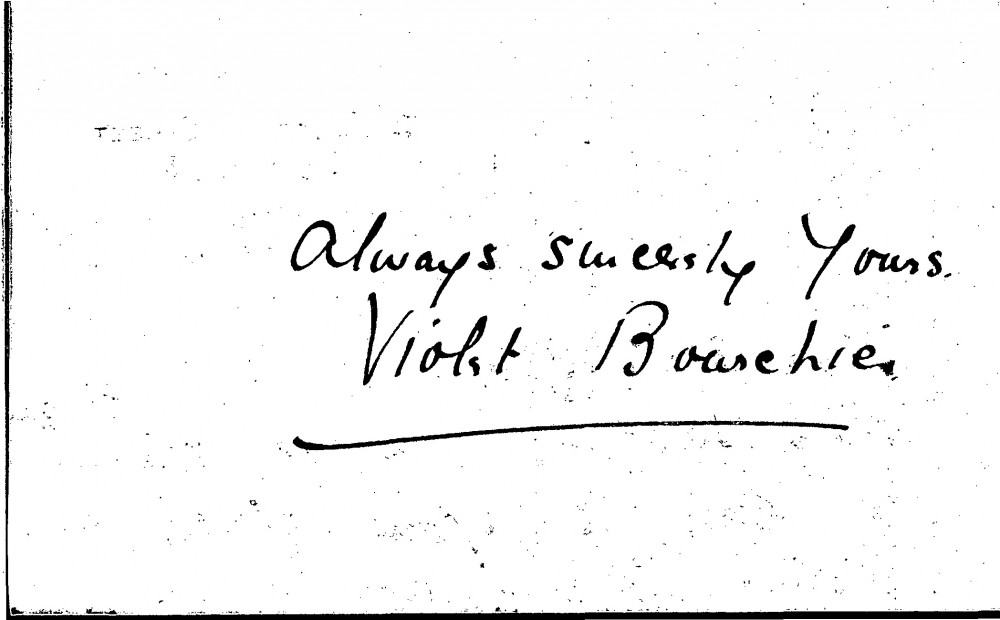 Always sincerely Yours.
Violet Bourchier